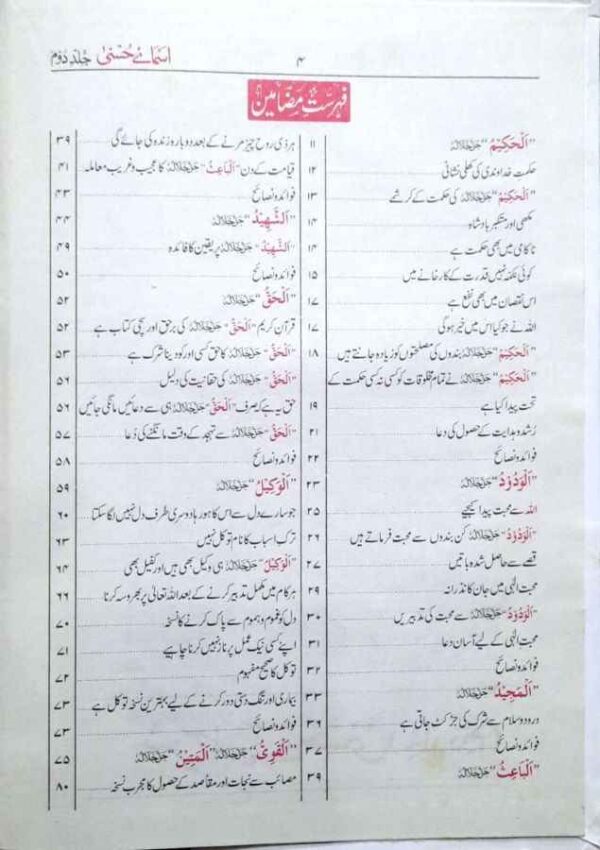 اسمائے حُسنیٰ جلد دُوم
۴
فہرستِ مضامین
"اَلْحَكِيْمُ" جَلَّ جَلَالُهٗ ۱۱
حکمت خداوندی کی کھلی نشانی ۱۲
"اَلْحَكِيْمُ" جَلَّ جَلَالُهٗ کی حکمت کے کرشمے ۱۳
مکھی اور متکبر بادشاہ ۱۴
ناکامی میں بھی حکمت ہے ۱۴
کوئی نکمّہ نہیں قدرت کے کارخانے میں ۱۵
اس نقصان میں بھی نفع ہے ۱۷
اللہ نے جو کیا اس میں خیر ہوگی ۱۷
"اَلْحَكِيْمُ" جَلَّ جَلَالُهٗ بندوں کی مصلحتوں کو زیادہ جانتے ہیں ۱۸
"اَلْحَكِيْمُ" جَلَّ جَلَالُهٗ نے تمام مخلوقات کو کسی نہ کسی حکمت کے
تحت پیدا کیا ہے ۱۹
رُشد و ہدایت کے حصول کی دعا ۲۱
فوائد و نصائح ۲۲
"اَلْوَدُوْدُ" جَلَّ جَلَالُهٗ ۲۳
اللہ سے محبت پیدا کیجیے ۲۵
"اَلْوَدُوْدُ" جَلَّ جَلَالُهٗ کن بندوں سے محبت فرماتے ہیں ۲۶
قصے سے حاصل شدہ باتیں ۲۷
محبت الٰہی میں جان کا نذرانہ ۲۹
"اَلْوَدُوْدُ" جَلَّ جَلَالُهٗ سے محبت کی تدبیریں ۳۰
محبت الٰہی کے لیے آسان دعا ۳۱
فوائد و نصائح ۳۲
"اَلْمَجِيْدُ" جَلَّ جَلَالُهٗ ۳۳
درود و سلام سے شرک کی جڑ کٹ جاتی ہے ۳۶
فوائد و نصائح ۳۷
"اَلْبَاعِثُ" جَلَّ جَلَالُهٗ ۳۹
ہر ذی روح چیز مرنے کے بعد دوبارہ زندہ کی جائے گی ۳۹
قیامت کے دن "اَلْبَاعِثُ" جَلَّ جَلَالُهٗ کا عجیب و غریب معاملہ ۴۱
فوائد و نصائح ۴۳
"اَلشَّهِيْدُ" جَلَّ جَلَالُهٗ ۴۴
"اَلشَّهِيْدُ" جَلَّ جَلَالُهٗ پر یقین کا فائدہ ۴۹
فوائد و نصائح ۵۰
"اَلْحَقُّ" جَلَّ جَلَالُهٗ ۵۲
قرآن کریم "اَلْحَقُّ" جَلَّ جَلَالُهٗ کی برحق اور سچی کتاب ہے ۵۲
"اَلْحَقُّ" جَلَّ جَلَالُهٗ کا حق کسی اور کو دینا شرک ہے ۵۳
"اَلْحَقُّ" جَلَّ جَلَالُهٗ کی حقانیت کی دلیل ۵۶
حق یہ ہے کہ صرف "اَلْحَقُّ" جَلَّ جَلَالُهٗ ہی سے دعائیں مانگی جائیں ۵۶
"اَلْحَقُّ" جَلَّ جَلَالُهٗ سے تہجد کے وقت مانگنے کی دُعا ۵۷
فوائد و نصائح ۵۸
"اَلْوَكِيْلُ" جَلَّ جَلَالُهٗ ۵۹
جو سارے دل سے اس کا ہو رہا وہ دوسری طرف دل نہیں لگا سکتا ۶۰
ترک اسباب کا نام توکل نہیں ۶۳
"اَلْوَكِيْلُ" جَلَّ جَلَالُهٗ ہی وکیل بھی ہیں اور کفیل بھی ۶۴
ہر کام میں مکمل تدبیر کرنے کے بعد اللہ تعالیٰ پر بھروسہ کرنا ۶۶
دل کو غموم و ہموم سے پاک کرنے کا نسخہ ۷۰
اپنے کسی نیک عمل پر ناز نہیں کرنا چاہیے ۷۱
توکل کا صحیح مفہوم ۷۲
بیماری اور تنگ دستی دور کرنے کے لیے بہترین نسخہ توکل ہے ۷۳
فوائد و نصائح ۷۳
"اَلْقَوِيُّ" جَلَّ جَلَالُهٗ "اَلْمَتِيْنُ" جَلَّ جَلَالُهٗ ۷۵
مصائب سے نجات اور مقاصد کے حصول کا مجرب نسخہ ۸۰